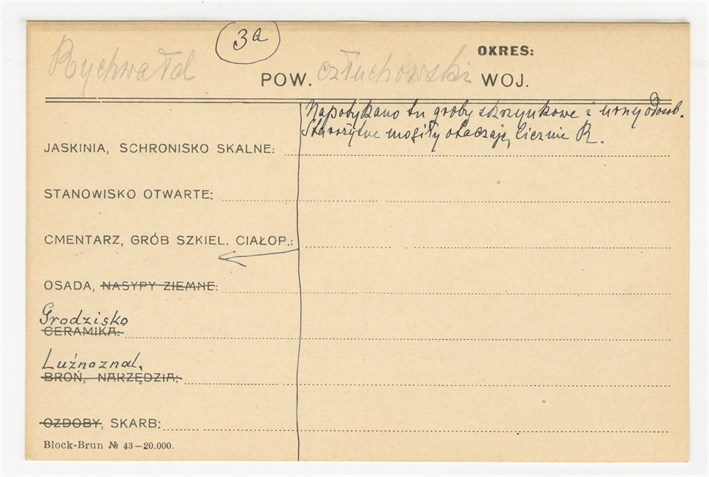 Rychwałd
3a
OKRES:
POW. człuchowski WOJ.
Napotykano tu groby skrzynkowe i urny odosob.
Starożytne mogiły otaczają licznie R.
JASKINIA, SCHRONISKO SKALNE:
STANOWISKO OTWARTE:
CMENTARZ, GRÓB SZKIEL. CIAŁOP.:
OSADA, NASYPY ZIEMNE:
Grodzisko
CERAMIKA:
Luźnoznal.
BROŃ, NARZĘDZIA:
OZDOBY, SKARB:
Block-Brun № 43—20.000.